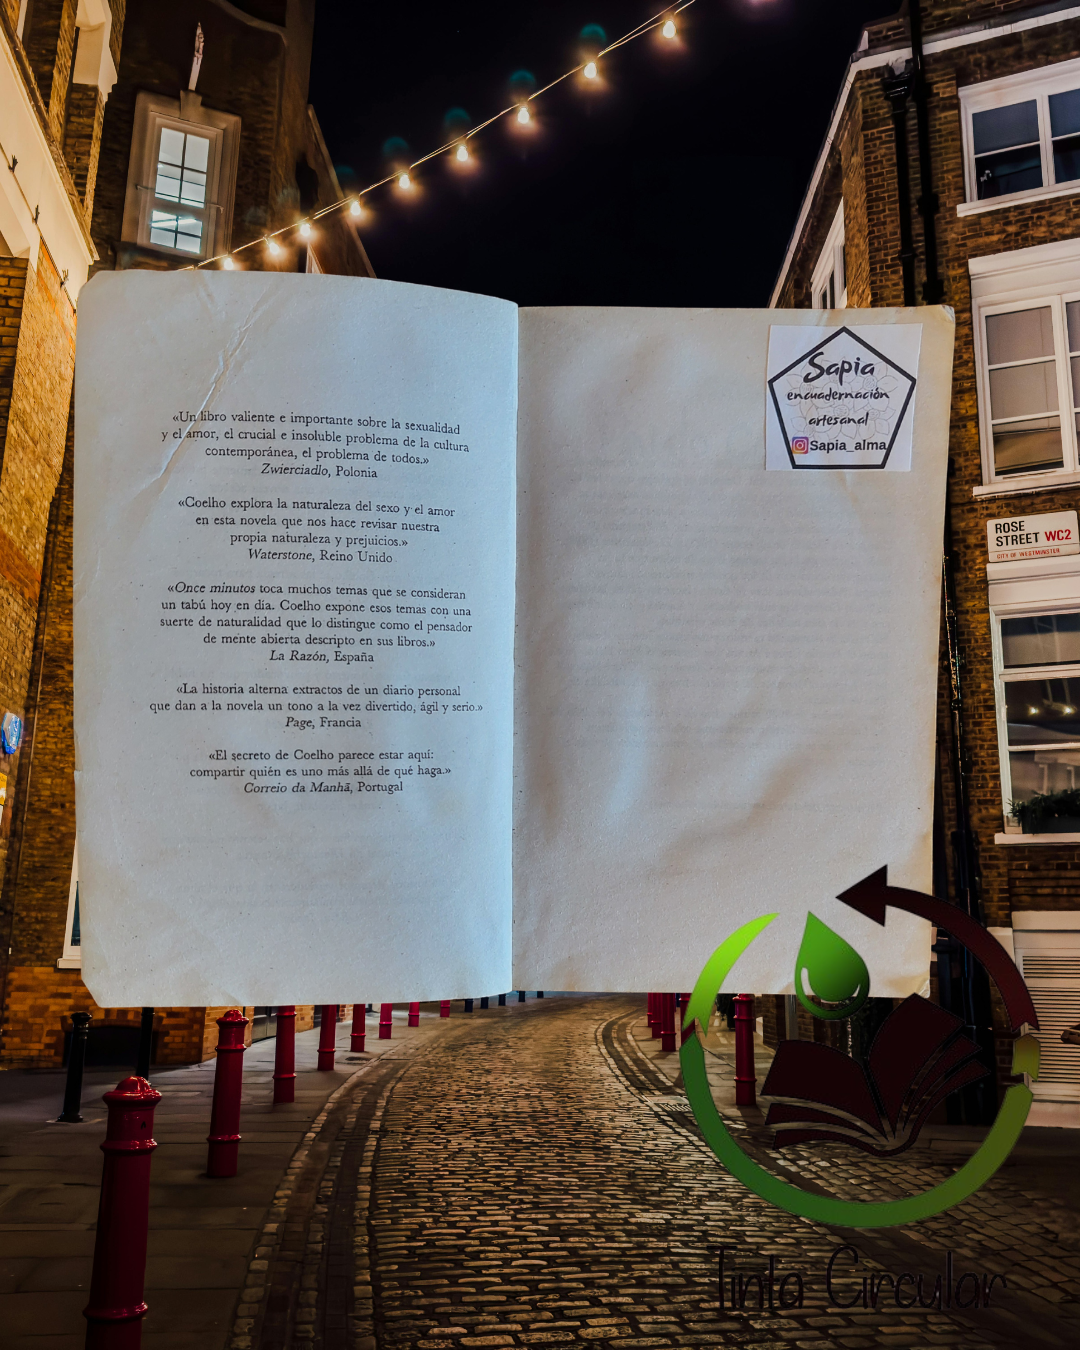 «Un libro valiente e importante sobre la sexualidad
y el amor, el crucial e insoluble problema de la cultura
contemporánea, el problema de todos.»
Zwierciadlo, Polonia
«Coelho explora la naturaleza del sexo y el amor
en esta novela que nos hace revisar nuestra
propia naturaleza y prejuicios.»
Waterstone, Reino Unido
«Once minutos toca muchos temas que se consideran
un tabú hoy en día. Coelho expone esos temas con una
suerte de naturalidad que lo distingue como el pensador
de mente abierta descripto en sus libros.»
La Razón, España
«La historia alterna extractos de un diario personal
que dan a la novela un tono a la vez divertido, ágil y serio.»
Page, Francia
«El secreto de Coelho parece estar aquí:
compartir quién es uno más allá de qué haga.»
Correio da Manhã, Portugal
Sapia
encuadernación
artesanal
Sapia_alma
ROSE
STREET WC2
CITY OF WESTMINSTER
Tinta Circular